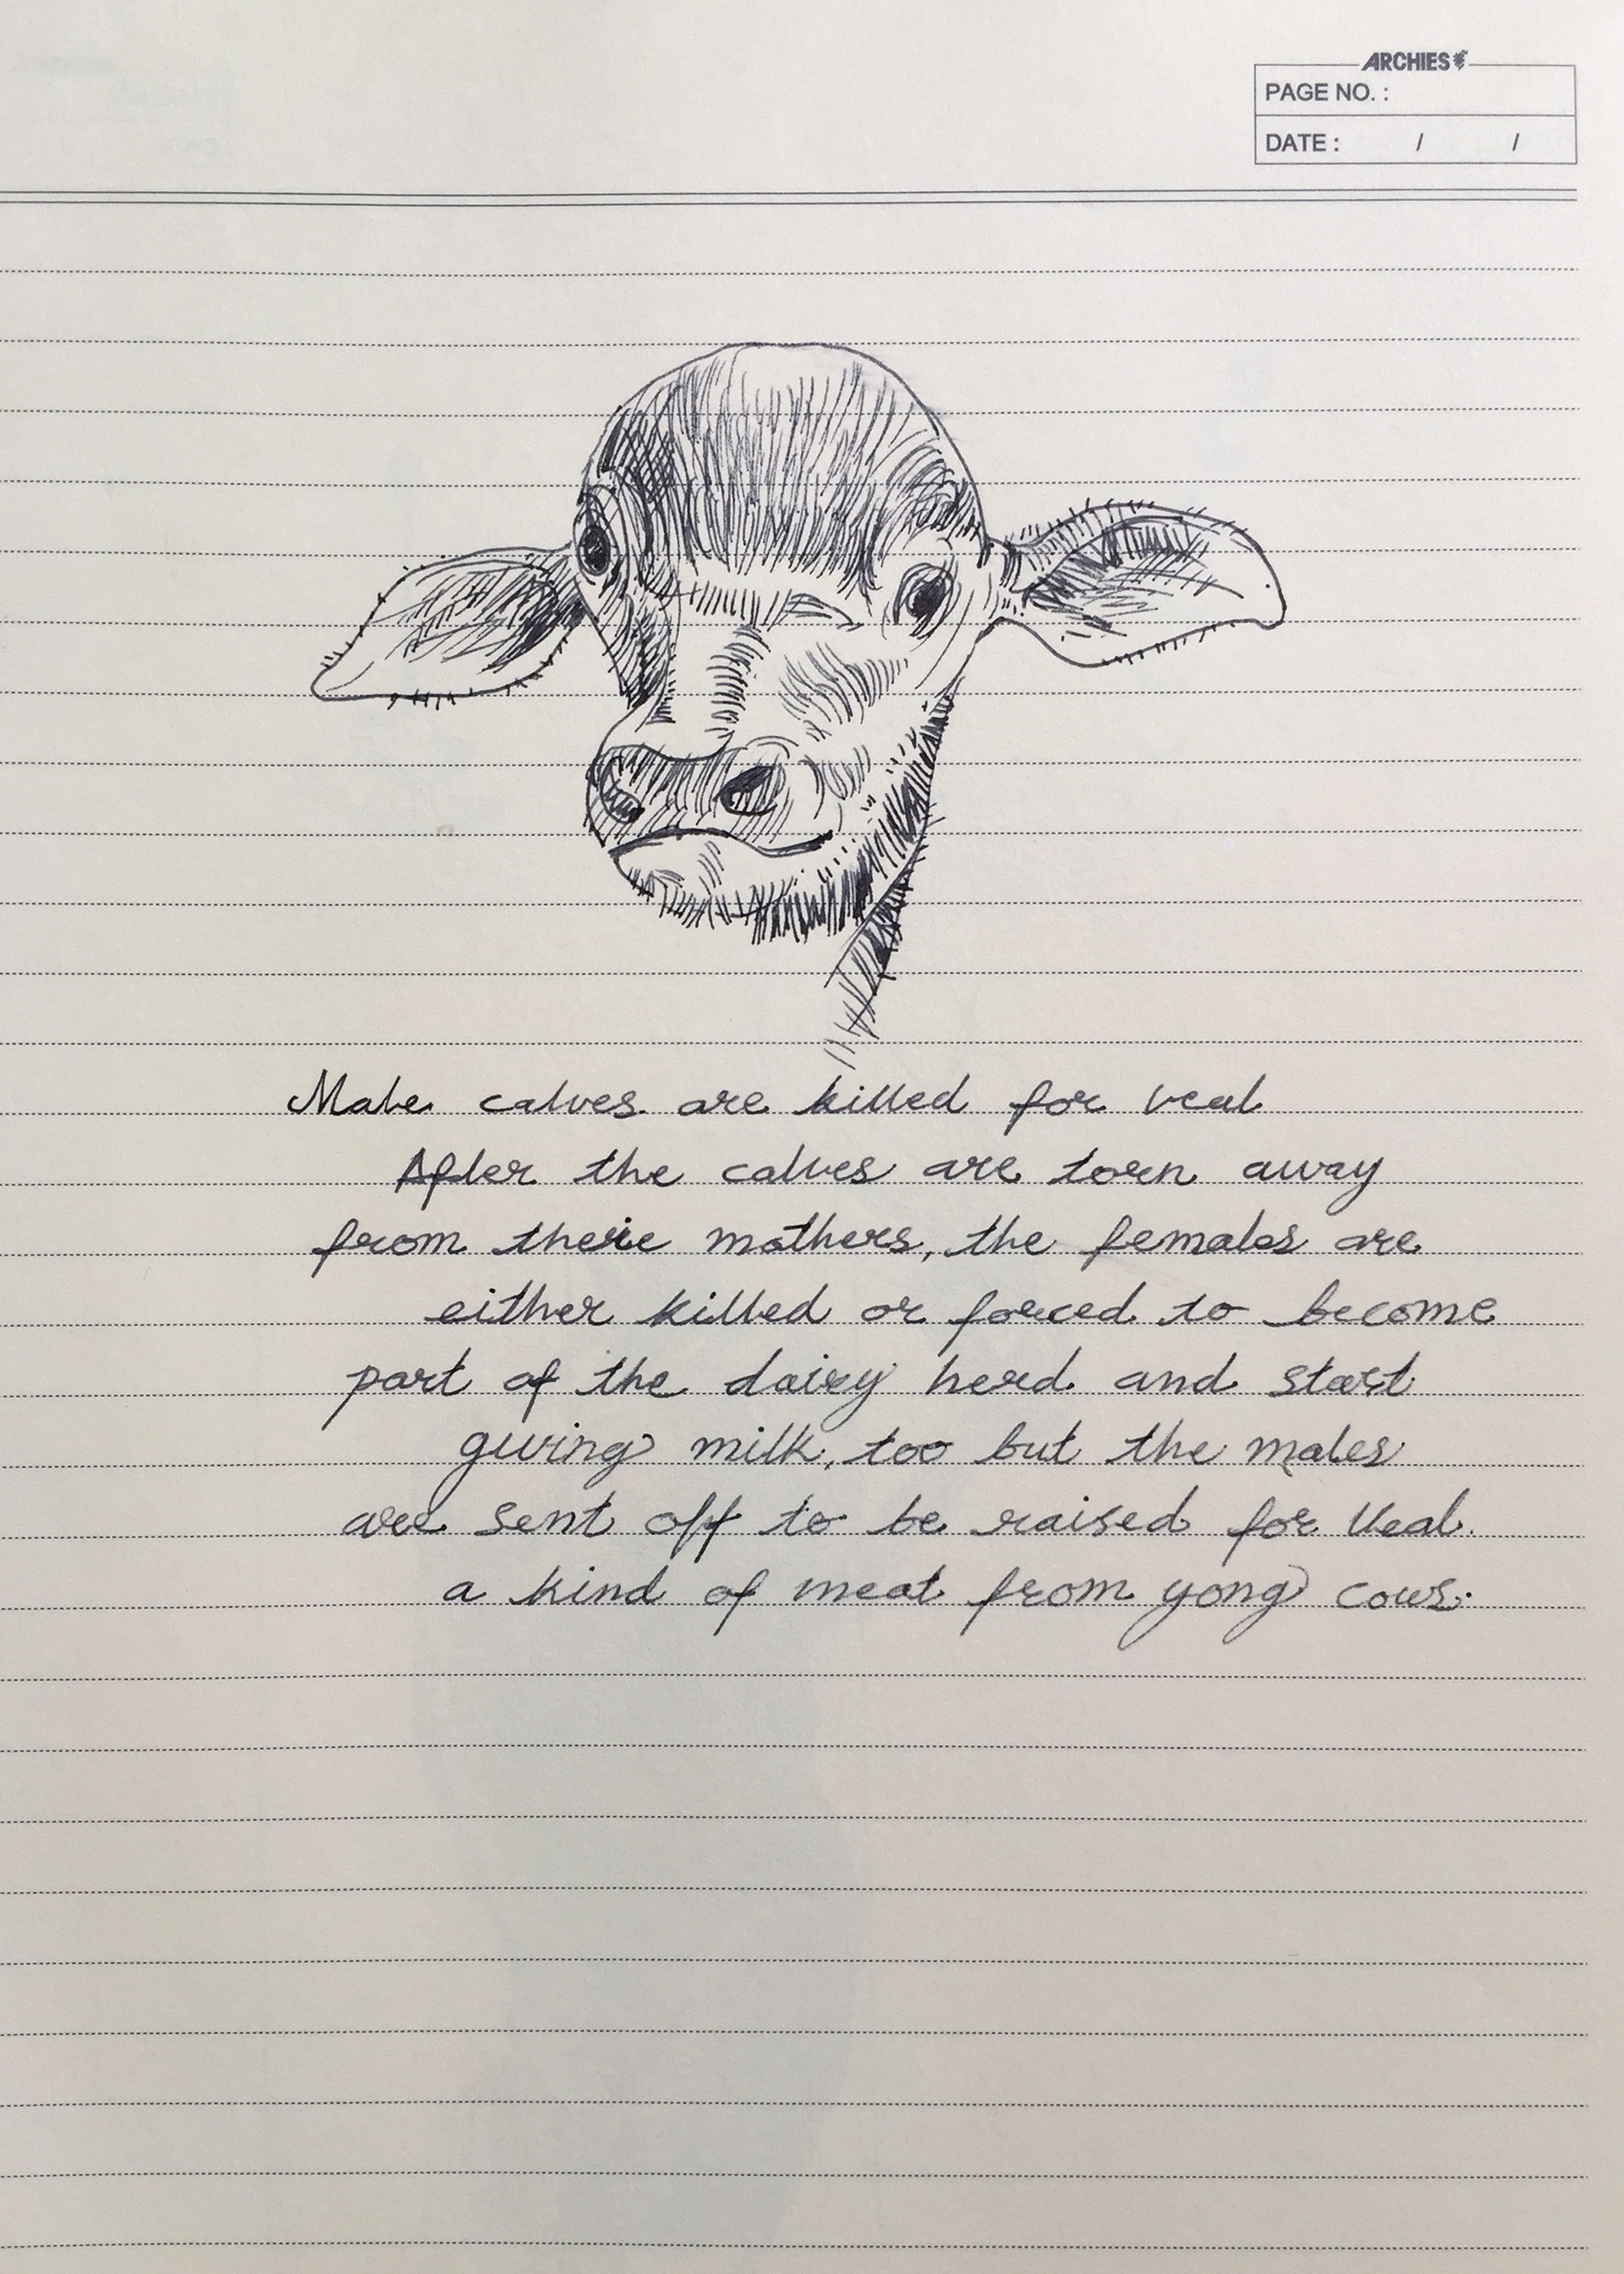 ARCHIES
PAGE NO. :
DATE : / /
Male calves are killed for veal
After the calves are torn away
from their mothers, the females are
either killed or forced to become
part of the dairy herd and start
giving milk, too but the males
are sent off to be raised for Veal.
a kind of meat from yong cows.